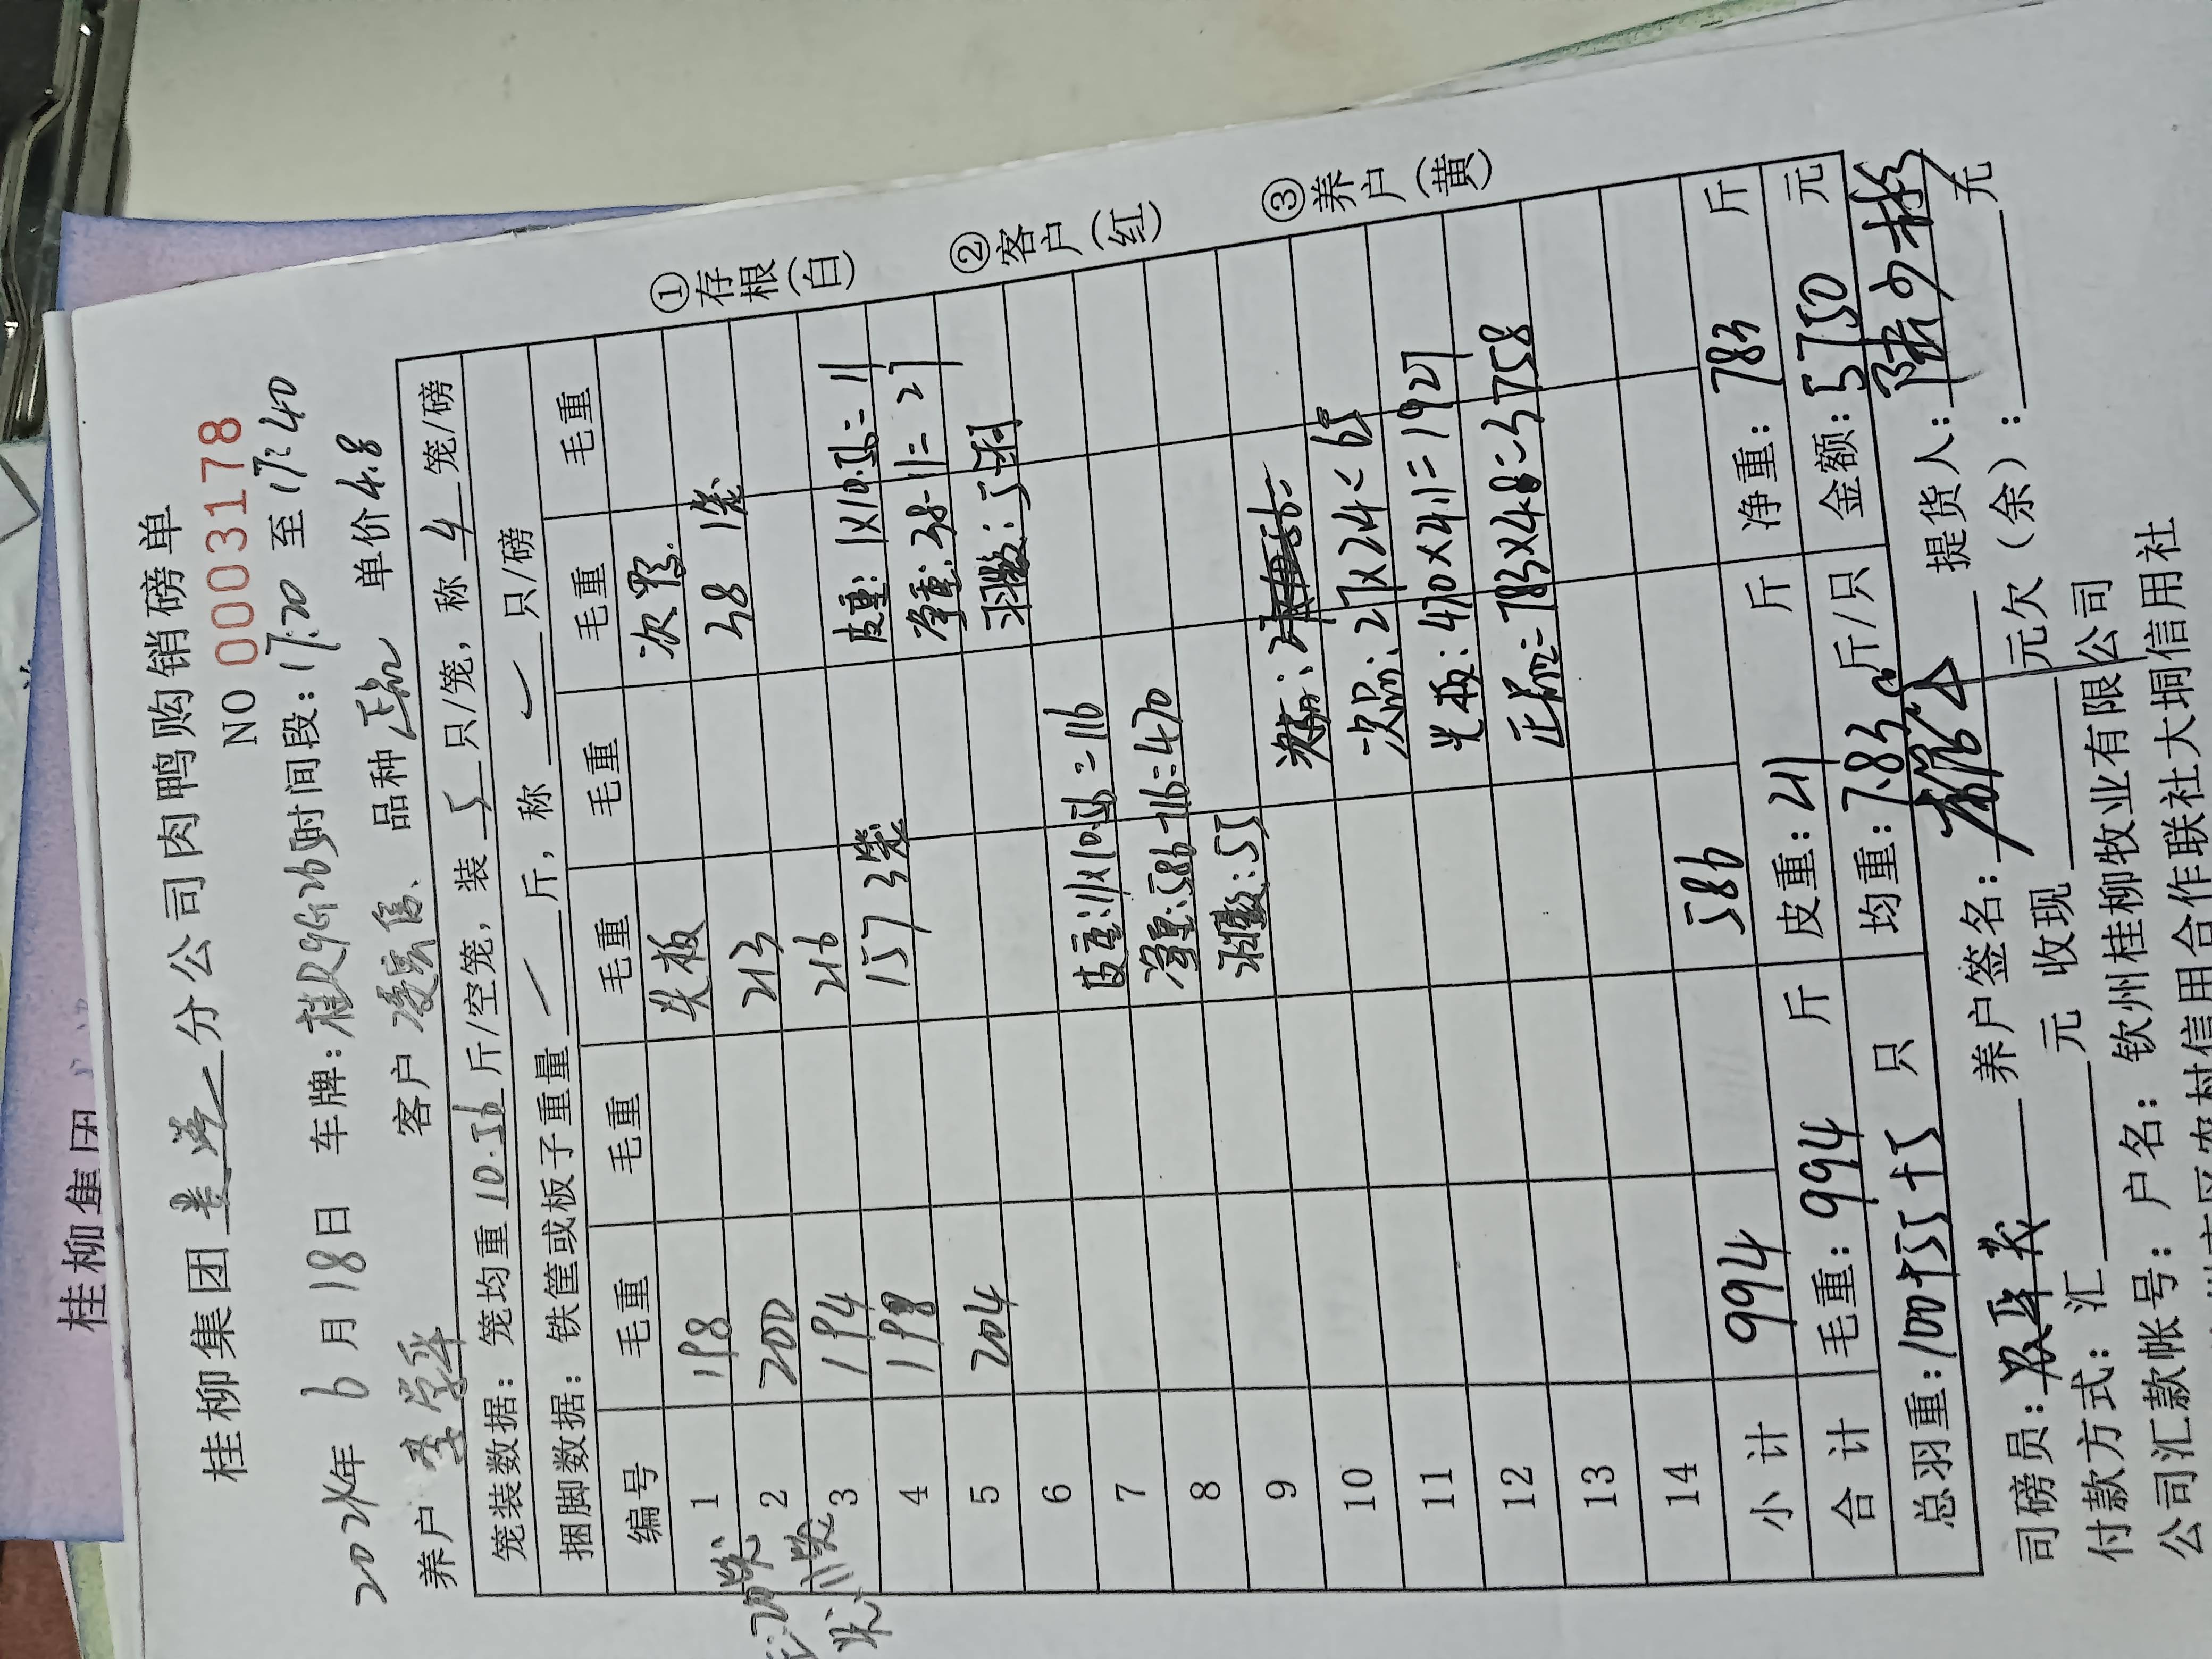 桂柳集团
桂柳集团 分公司肉鸭购销磅单
NO 0003178
2024年 6月18日 车牌: 时间段:17:20 至 17:40
养户 客户 品种 正品 单价 4.8
笼装数据: 笼均重 10.56 斤/空笼, 装 5 只/笼, 称 4 笼/磅
捆脚数据: 铁筐或板子重量 斤, 称 只/磅
编号 毛重 毛重 毛重 毛重 毛重 毛重
1 198 光板 次鸭
2 200 213 38 1笼
3 194 216
4 198 157 3笼 皮重:1X10.56=11
5 204 净重:38-11=27
6 羽数:5羽
7 皮重:11X10.56=116
8 净重:586-116=470
9 羽数:55
10 次品:27X2.4=65
11 光板:470X4.1=1927
12 正品=783X4.8=3758
13
14
小计 994 586
合计 毛重: 994 斤 皮重: 211 斤 净重: 783 斤
总羽重: 100+55+5 只 均重: 7.83 斤/只 金额: 5750 元
司磅员: 养户签名: 提货人:
付款方式: 汇 元 收现 元欠(余): 元
公司汇款帐号: 户名: 钦州桂柳牧业有限公司
农村信用合作联社大垌信用社
①存根(白)
②客户(红)
③养户(黄)